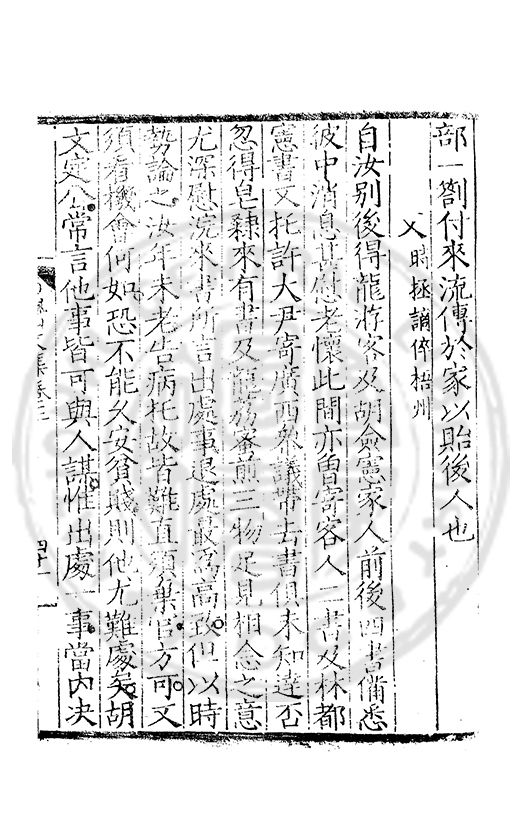 部一劄付來流傳於家以貽後人也
又時拯謫倅梧州
自汝別後得龍游客及胡僉憲家人前後四書備悉
彼中消息甚慰老懷此間亦曾寄客人二書及林都
憲書又托許大尹寄廣西參議帶去書俱未知達否
忽得皂隸來有書及龍荔蜜煎三物足見相念之意
尤深慰浣來書所言出處事退處最爲高致但以時
勢論之汝年未老告病托故皆難直須棄官方可又
須看機會何如恐不能久安貧賤則他尤難處矣胡
文定公常言他事皆可與人謀惟出處一事當內决
文集卷三
四十一